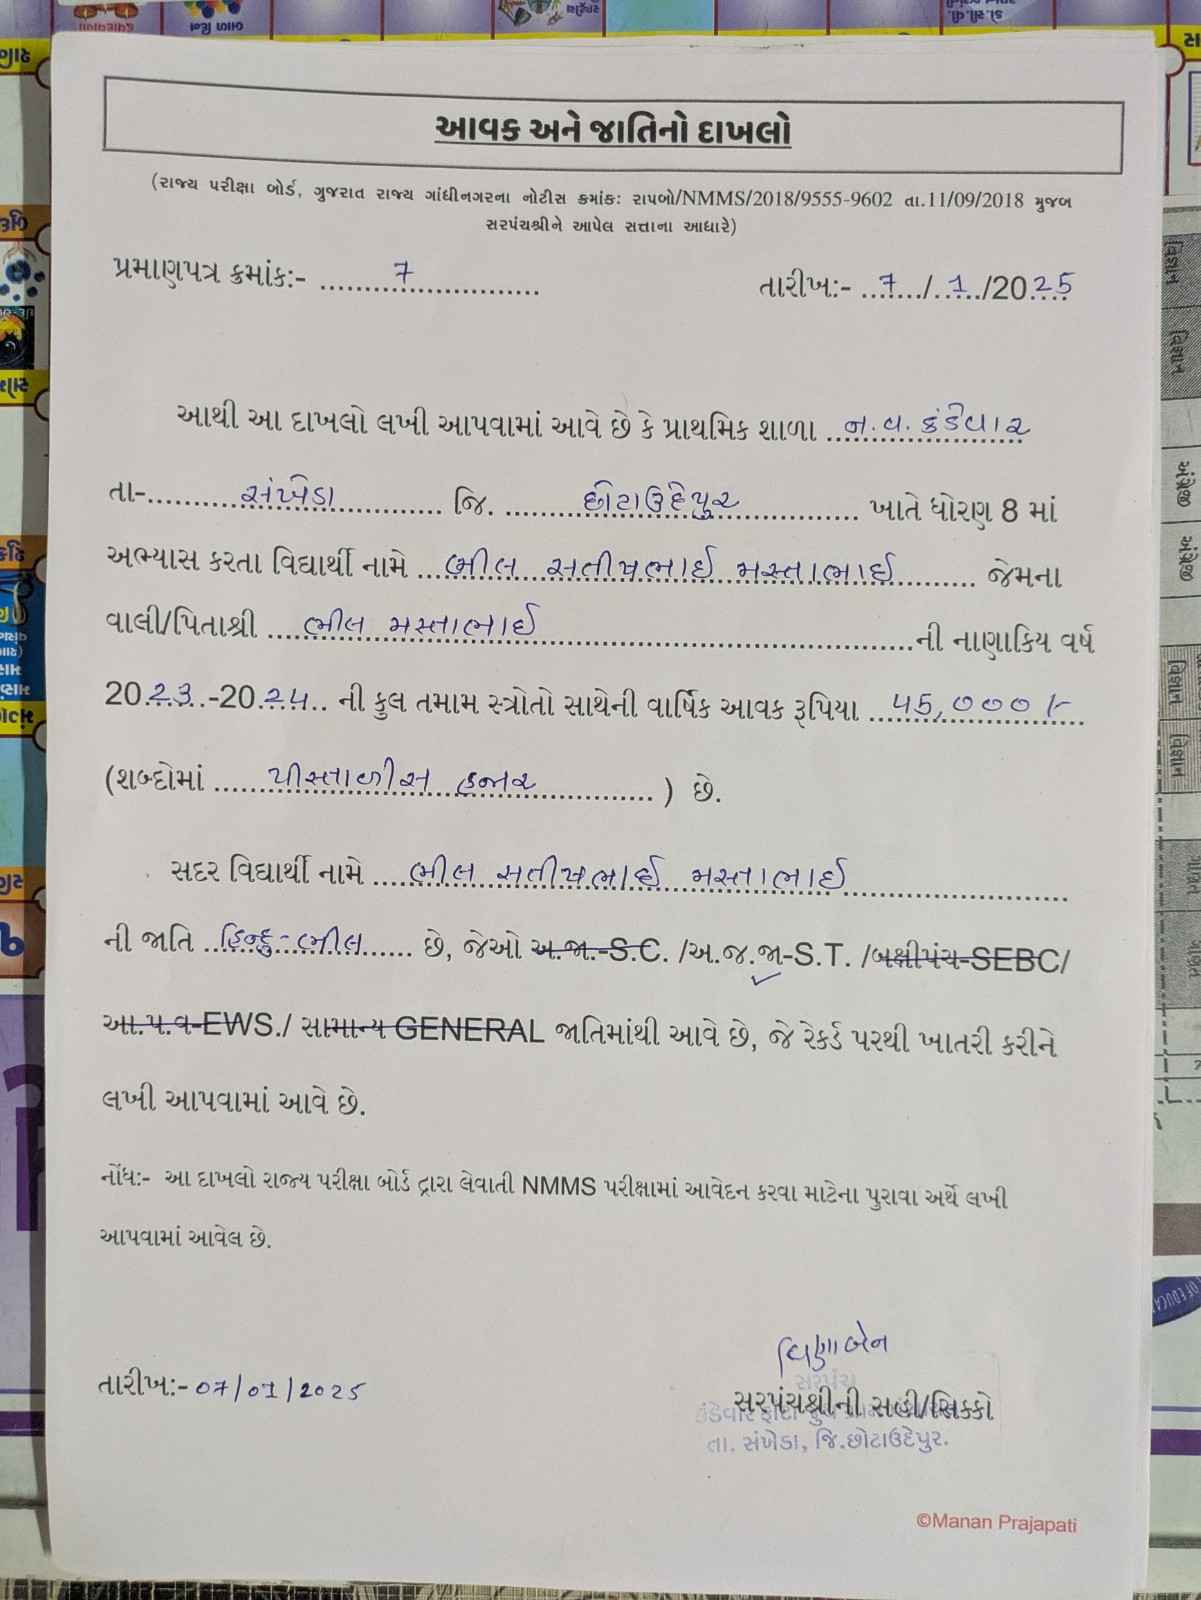 આવક અને જાતિનો દાખલો
(રાજ્ય પરીક્ષા બોર્ડ, ગુજરાત રાજ્ય ગાંધીનગરના નોટીસ ક્રમાંક: રાપબો/NMMS/2018/9555-9602 તા.11/09/2018 મુજબ
સરપંચશ્રીને આપેલ સત્તાના આધારે)
પ્રમાણપત્ર ક્રમાંક:- ૭ તારીખ:- ૭/1/2025
આથી આ દાખલો લખી આપવામાં આવે છે કે પ્રાથમિક શાળા ન.વ. કંડેવાર
તા-સંખેડા જિ. છોટાઉદેપુર ખાતે ધોરણ 8 માં
અભ્યાસ કરતા વિદ્યાર્થી નામે ભીલ સતીષભાઈ મસ્તાભાઈ જેમના
વાલી/પિતાશ્રી ભીલ મસ્તાભાઈ ની નાણાકિય વર્ષ
2023-2024 ની કુલ તમામ સ્ત્રોતો સાથેની વાર્ષિક આવક રૂપિયા ૪૫,૦૦૦/-
(શબ્દોમાં પીસ્તાળીસ હજાર) છે.
સદર વિદ્યાર્થી નામે ભીલ સતીષભાઈ મસ્તાભાઈ
ની જાતિ હિન્દુ-ભીલ છે, જેઓ અ.જા.-S.C. /અ.જ.જા-S.T. /બક્ષીપંચ-SEBC/
આ.પ.વ-EWS./ સામાન્ય GENERAL જાતિમાંથી આવે છે, જે રેકર્ડ પરથી ખાતરી કરીને
લખી આપવામાં આવે છે.
નોંધ:- આ દાખલો રાજ્ય પરીક્ષા બોર્ડ દ્વારા લેવાતી NMMS પરીક્ષામાં આવેદન કરવા માટેના પુરાવા અર્થે લખી
આપવામાં આવેલ છે.
વિણાબેન
સરપંચ
તારીખ:- 07/01/2025 સરપંચશ્રીની સહી/સિક્કો
તા. સંખેડા, જિ.છોટાઉદેપુર.
©Manan Prajapati